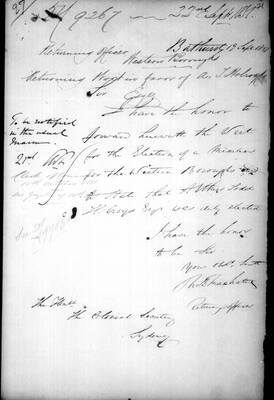 57/9267 22nd Sept 1857
Bathurst 19 Sept 1857
Returning Officer
Western Boroughs
Returning Writ in favor of A. T. Holroyd
Esqr
Sir
I have the honor to
To be notified
in the usual
manner.
forward herewith the Writ
for the Election of a Member
21st
for the Western Boroughs and
to state that Arthur Todd
Holroyd Esqr was duly elected
I have the honor
to be Sir
Your obdt servt
Returning Officer
The Honble
The Colonial Secretary
Sydney